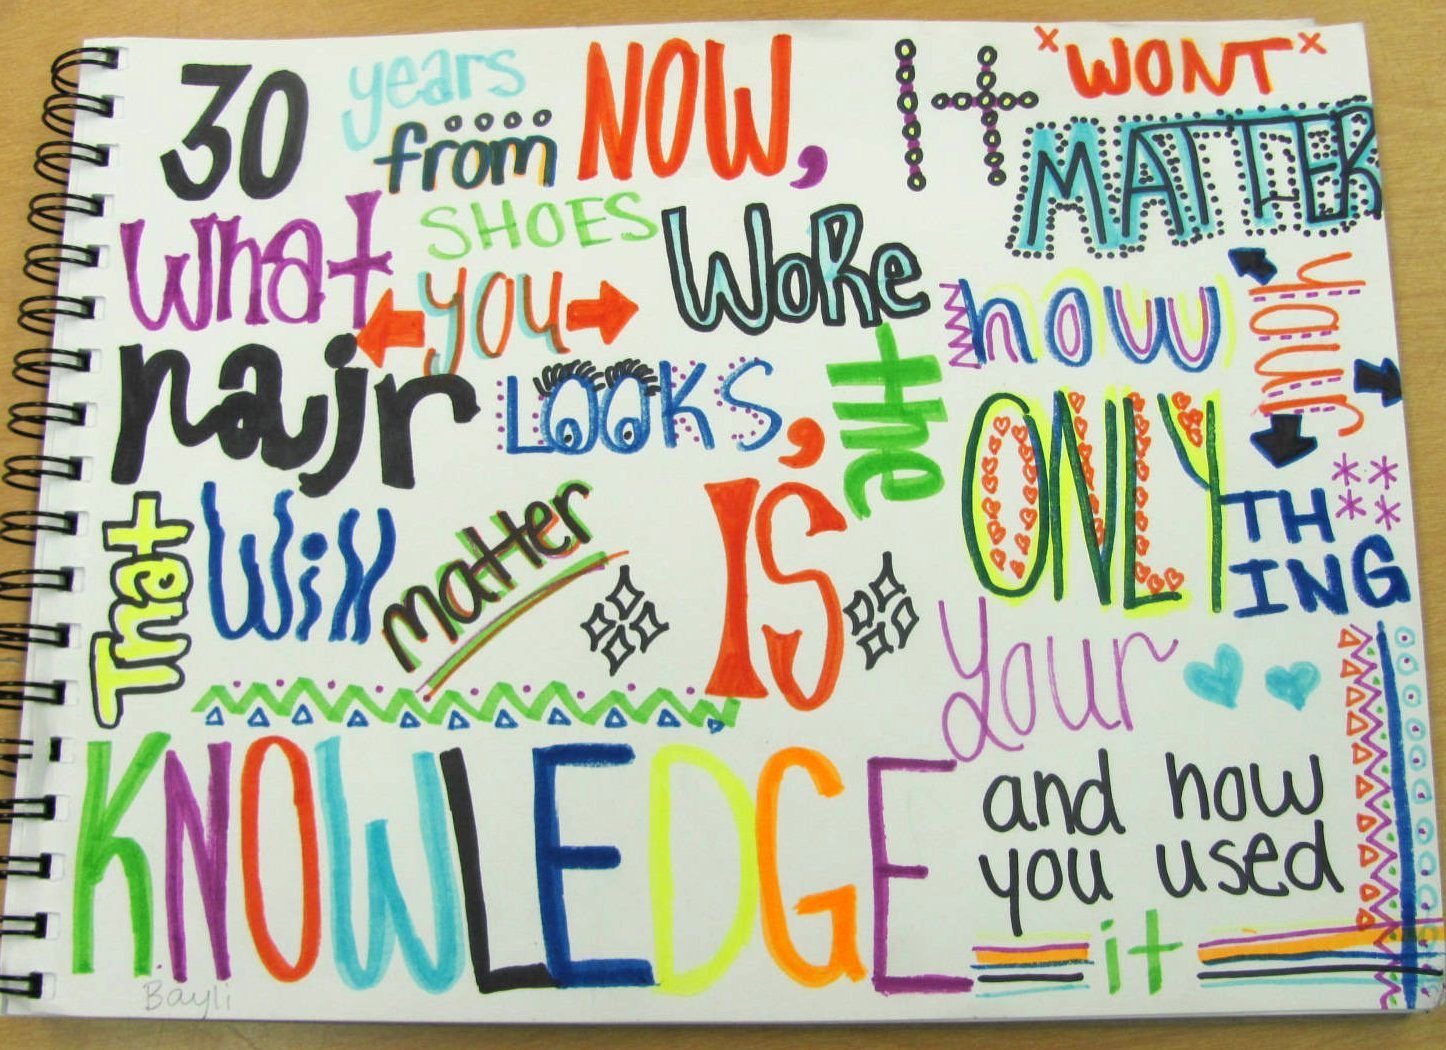 30 years from NOW, It WONT
MATTER
what SHOES you WoRe how your
hair LOOKS, the ONLY TH
ING
That Will matter IS your
KNOWLEDGE and how
you used
it
Bayli